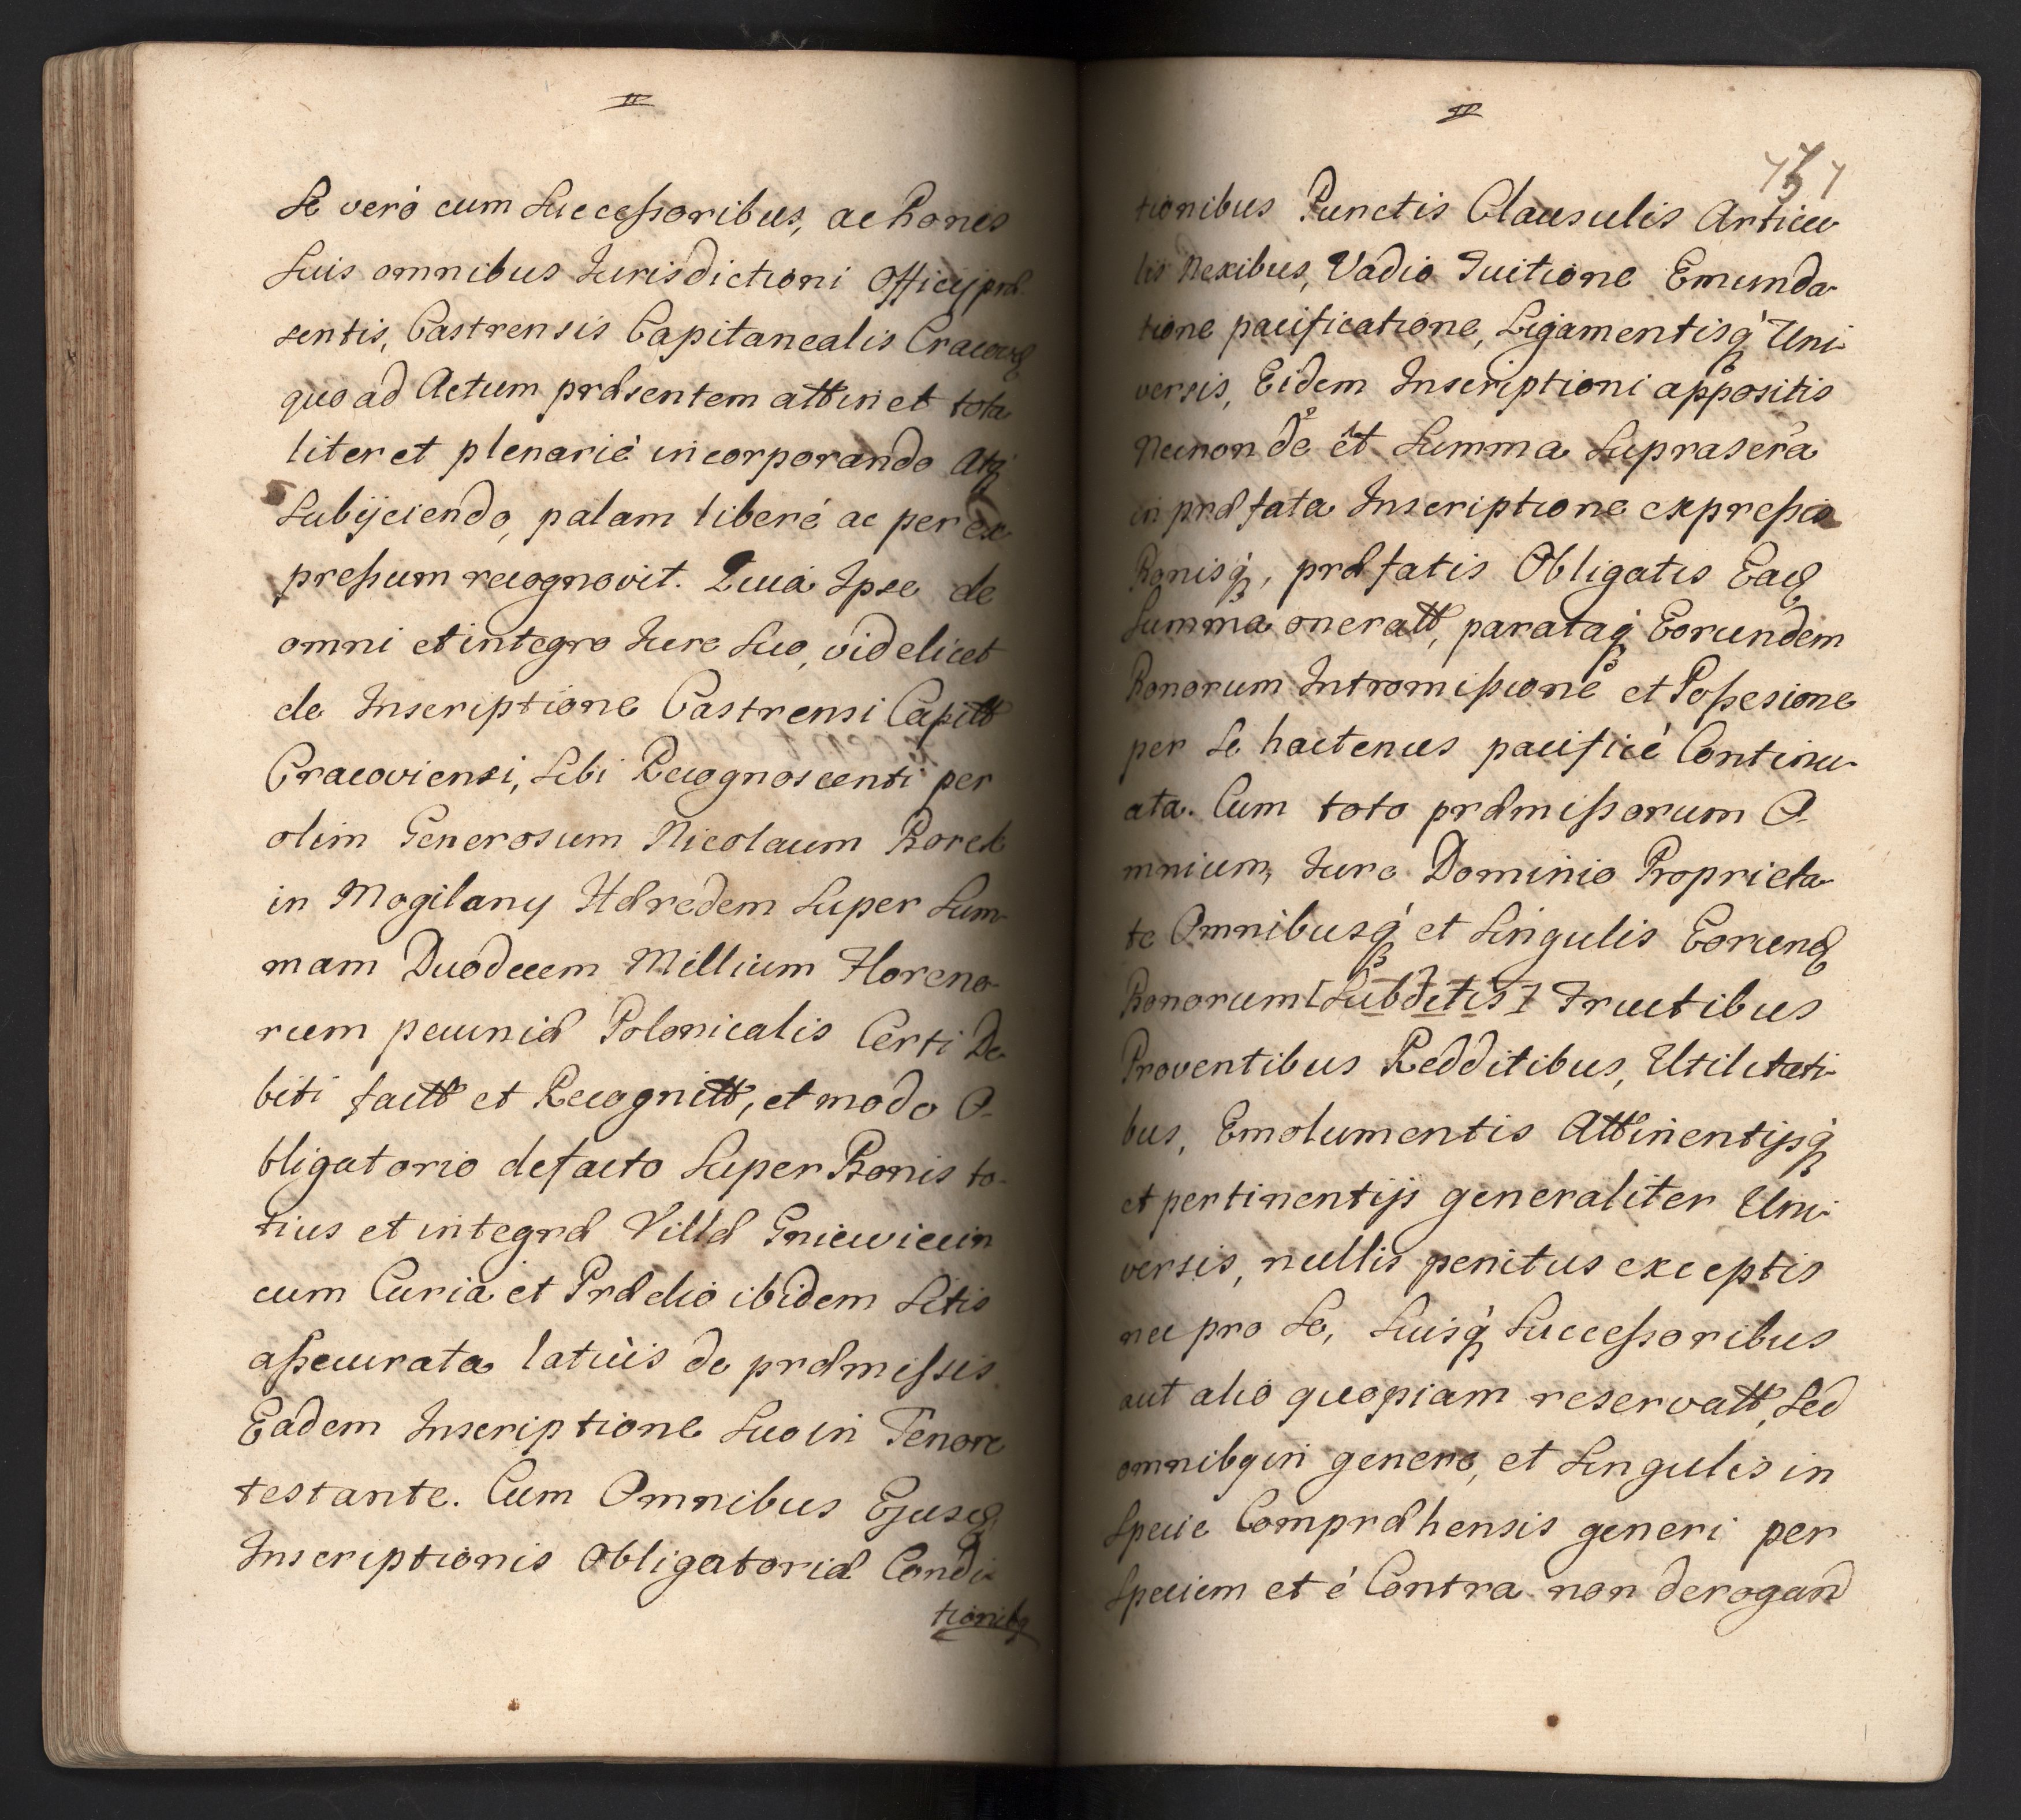 Se verò cum Successoribus, ac Bonis
Suis omnibus Jurisdictioni Officij præ
sentis, Castrensis Capitanealis Cracov
quo ad Actum præsentem attinet tota
liter et plenariè incorporando Atq́
Subijciendo, palam liberè ac per ex
pressum recognovit. Quia Ipse de
omni et integro Jure Suo, videlicet
de Inscriptione Castrensi Capitt
Cracoviensi, Sibi Recognoscenti per
olim Generosum Nicolaum Borek
in Mogilany Hæredem Super Sum-
mam Duodecem Millium Floreno-
rum pecuniæ Polonicalis Certi De
biti factt et Recognitt, et modo O-
bligatorio defacto Super Bonis to-
tius et integræ Villæ Gniewiecin
cum Curia et Prædio ibidem Sitis
assecurata latiùs de præmissis
Eadem Inscriptione Suo in Tenore
testante. Cum Omnibus Ejusd
Inscriptionis Obligatoriæ Condi-
tionibq
tionibus Punctis Clausulis Articu
lis Nexibus, Vadio Tuitione Emunda
tione pacificatione, Ligamentisq́ Uni-
versis, Eidem Inscriptioni appositis
Necnon de et Summa Suprascra
in præfata Inscriptione expressis
Bonisq́, præfatis Obligatis Ead
Summa oneratt, parataq́ Eorundem
Bonorum Intromissione et Possesione
per Se hactenus pacificè Continu-
ata. Cum toto præmissorum O-
mnium, Jure Dominio Proprieta-
te Omnibusq́ et Singulis Eorund
Bonorum [Subditis] Fructibus
Proventibus Redditibus, Utilitati-
bus, Emolumentis Attinentijsq́
et pertinentijs generaliter Uni-
versis, nullis penitus exceptis
nec pro Se, Suisq́ Successoribus
aut alio quopiam reservatt, Sed
omnibq in genere, et Singulis in
Specie Compræhensis generi per
Speciem et è Contra non derogand